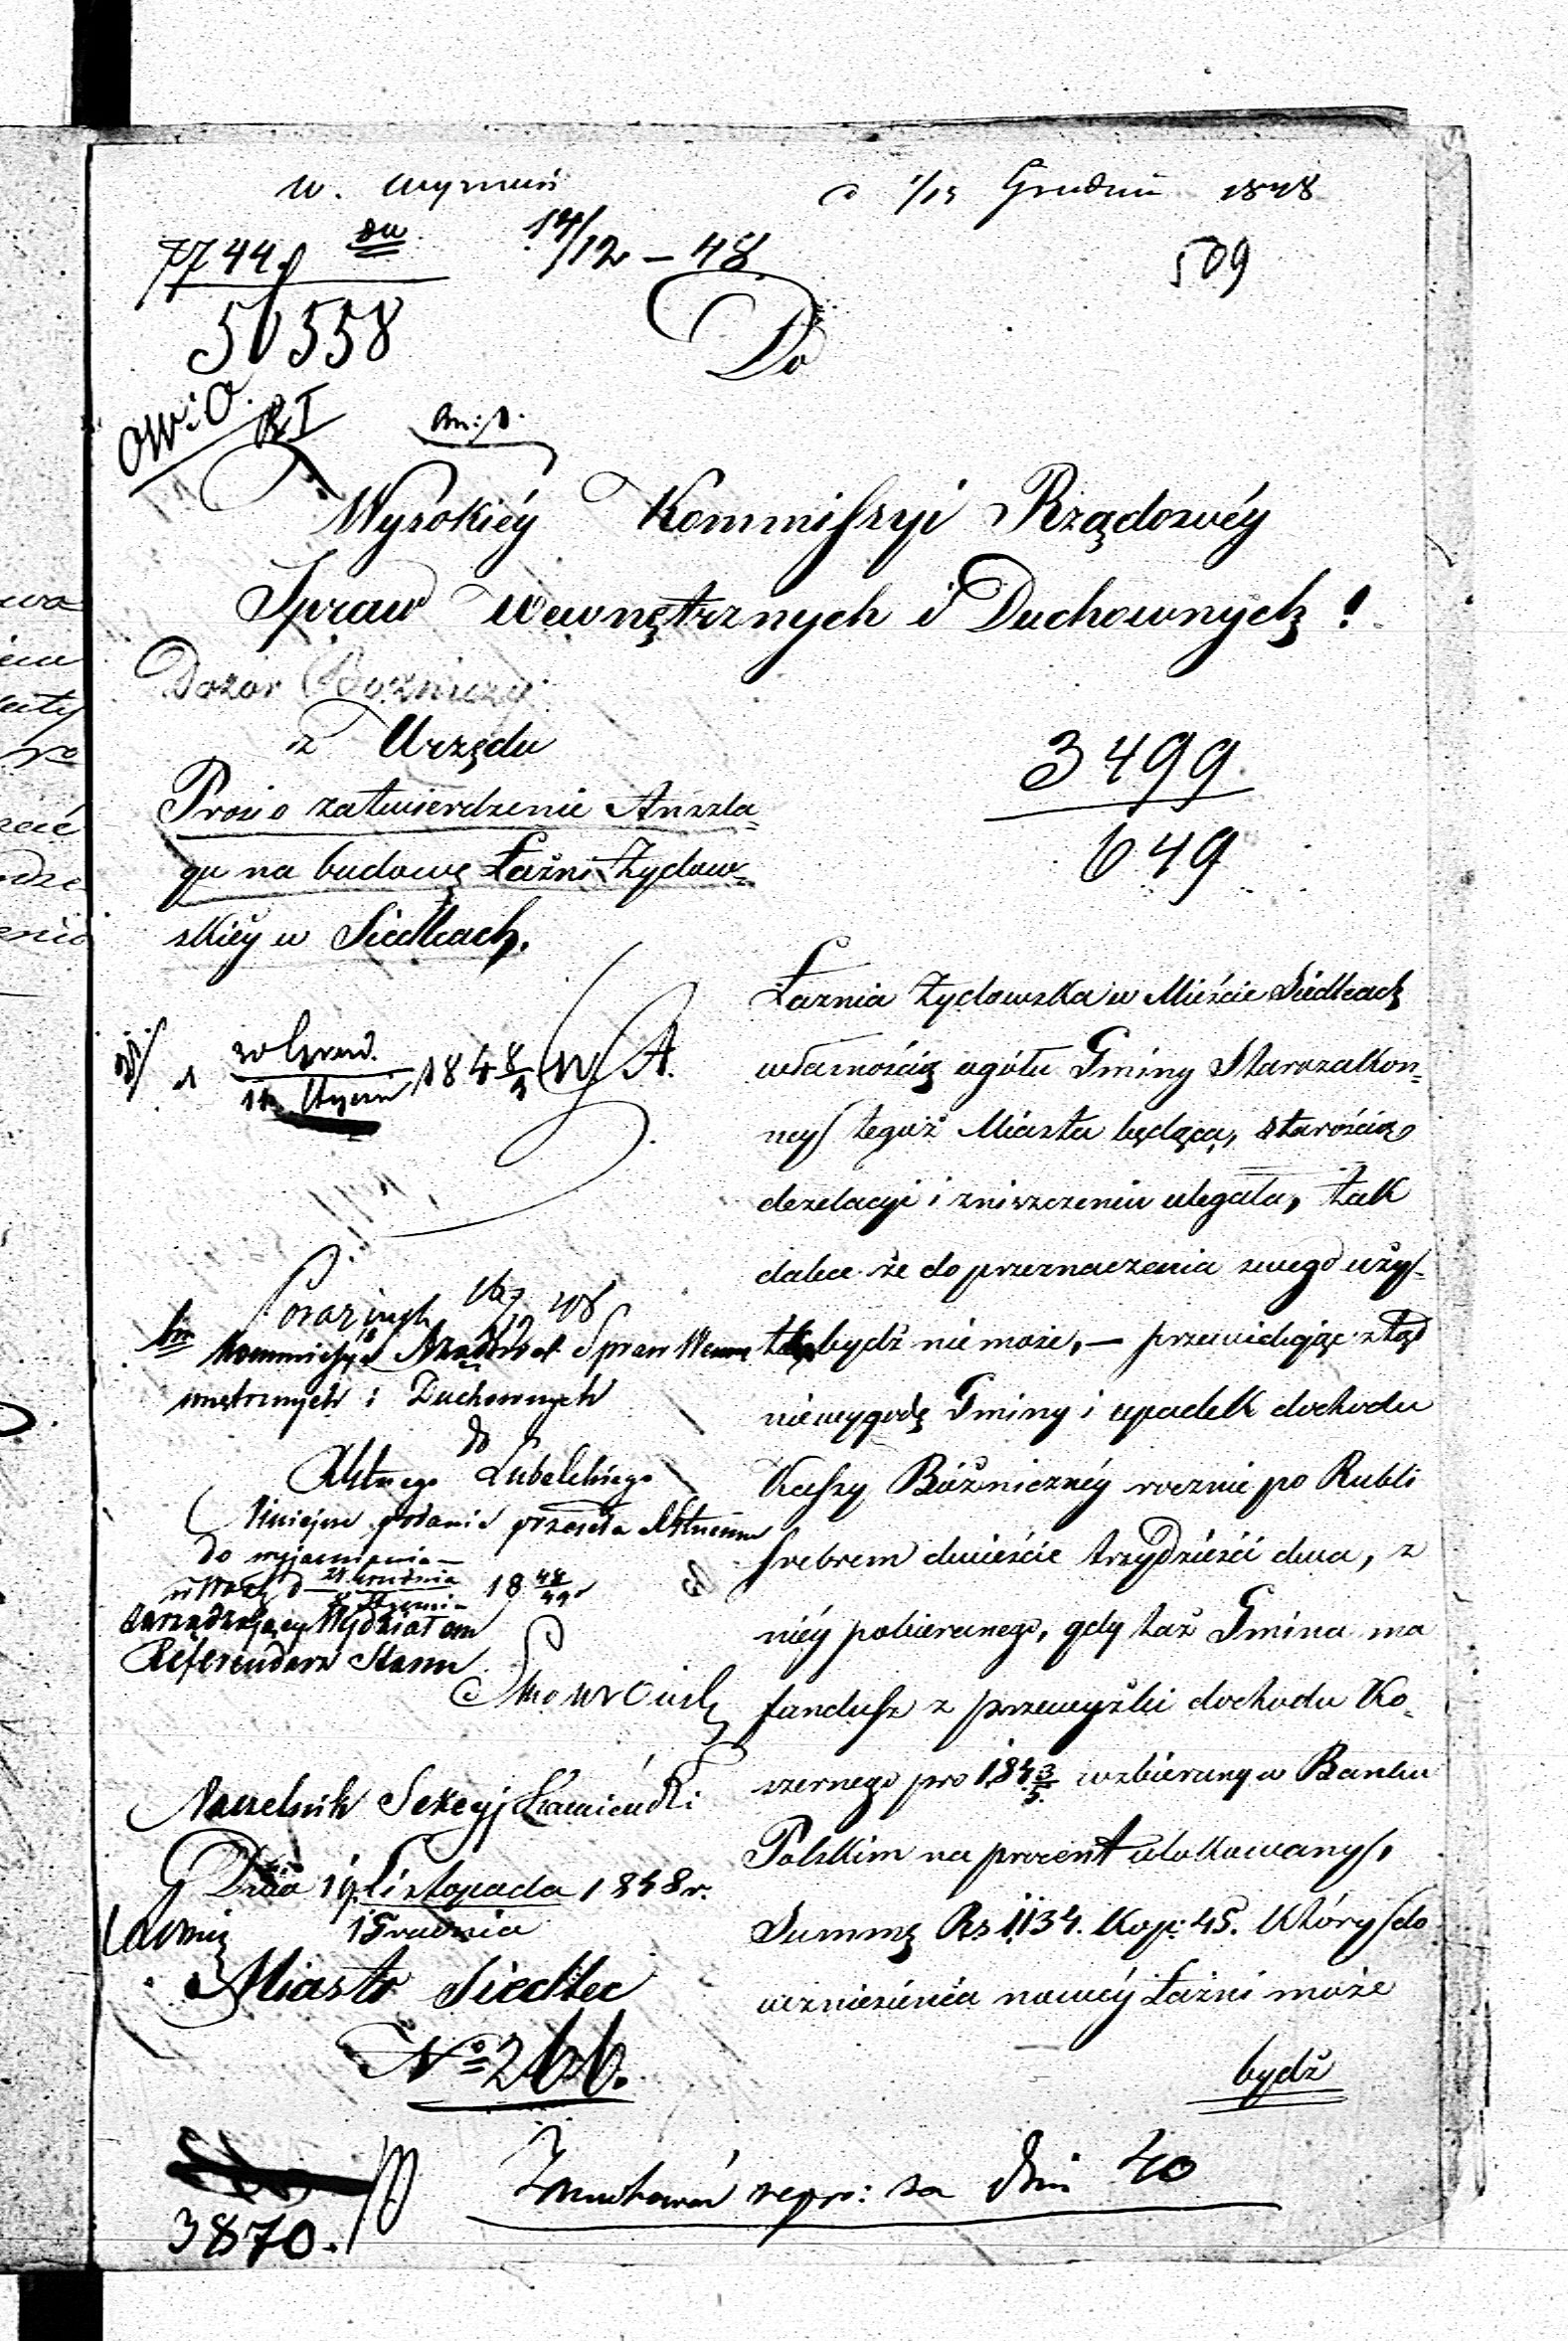 d 1/13 Grudnia 1848
7744. 14/12 – 48 509
50558
Do
RI
Wysokiéy Kommissyi Rządowéy
Spraw wewnętrznych i Duchownych!
Dozór Bożniczy
z Urzędu
Prosi o zatwierdzenie Anszla=
gu na budowę Łaźni Żydow=
skiéy w Siedlcach.
3499
649
Łaznia Żydowska w Mieście Siedlcach
własnością ogółu Gminy Starozakon=
ney tegoż Miasta będąca, starością
dezelacyi i zniszczeniu uległa, tak
dalece że do przeznaczenia swego uży=
tą bydź nie może, — przewidując ztąd
niewygodę Gminy i upadek dochodu
Kassy Bóżnicznéy rocznie po Rubli
srebrem dwieście trzydzieści dwa, z
niéy pobieranego, gdy taż Gmina ma
fundusz z przewyżki dochodu Ko=
szernego pro 1843/5 uzbierany w Banku
Polskim na procent ulokowany,
Summę Rs 1134. Kop: 45. Który do
wzniesienia nowéy Łaźni może
bydź
20 Grud.
1848/9
Kommissya Rządowa Spraw Wewnę
wnętrznych i Duchownych
do
Lubelskiego
Niniejsze podanie przeseła
do wyjaśnienia
18 48/49
Zarządzający Wydziałem
Referendarz Stanu
Naczelnik Sekcyi
Dnia 19 Listopada 1848 r.
1 Grudnia
Miasto Siedlec
No 266.
3870.
za dni 40